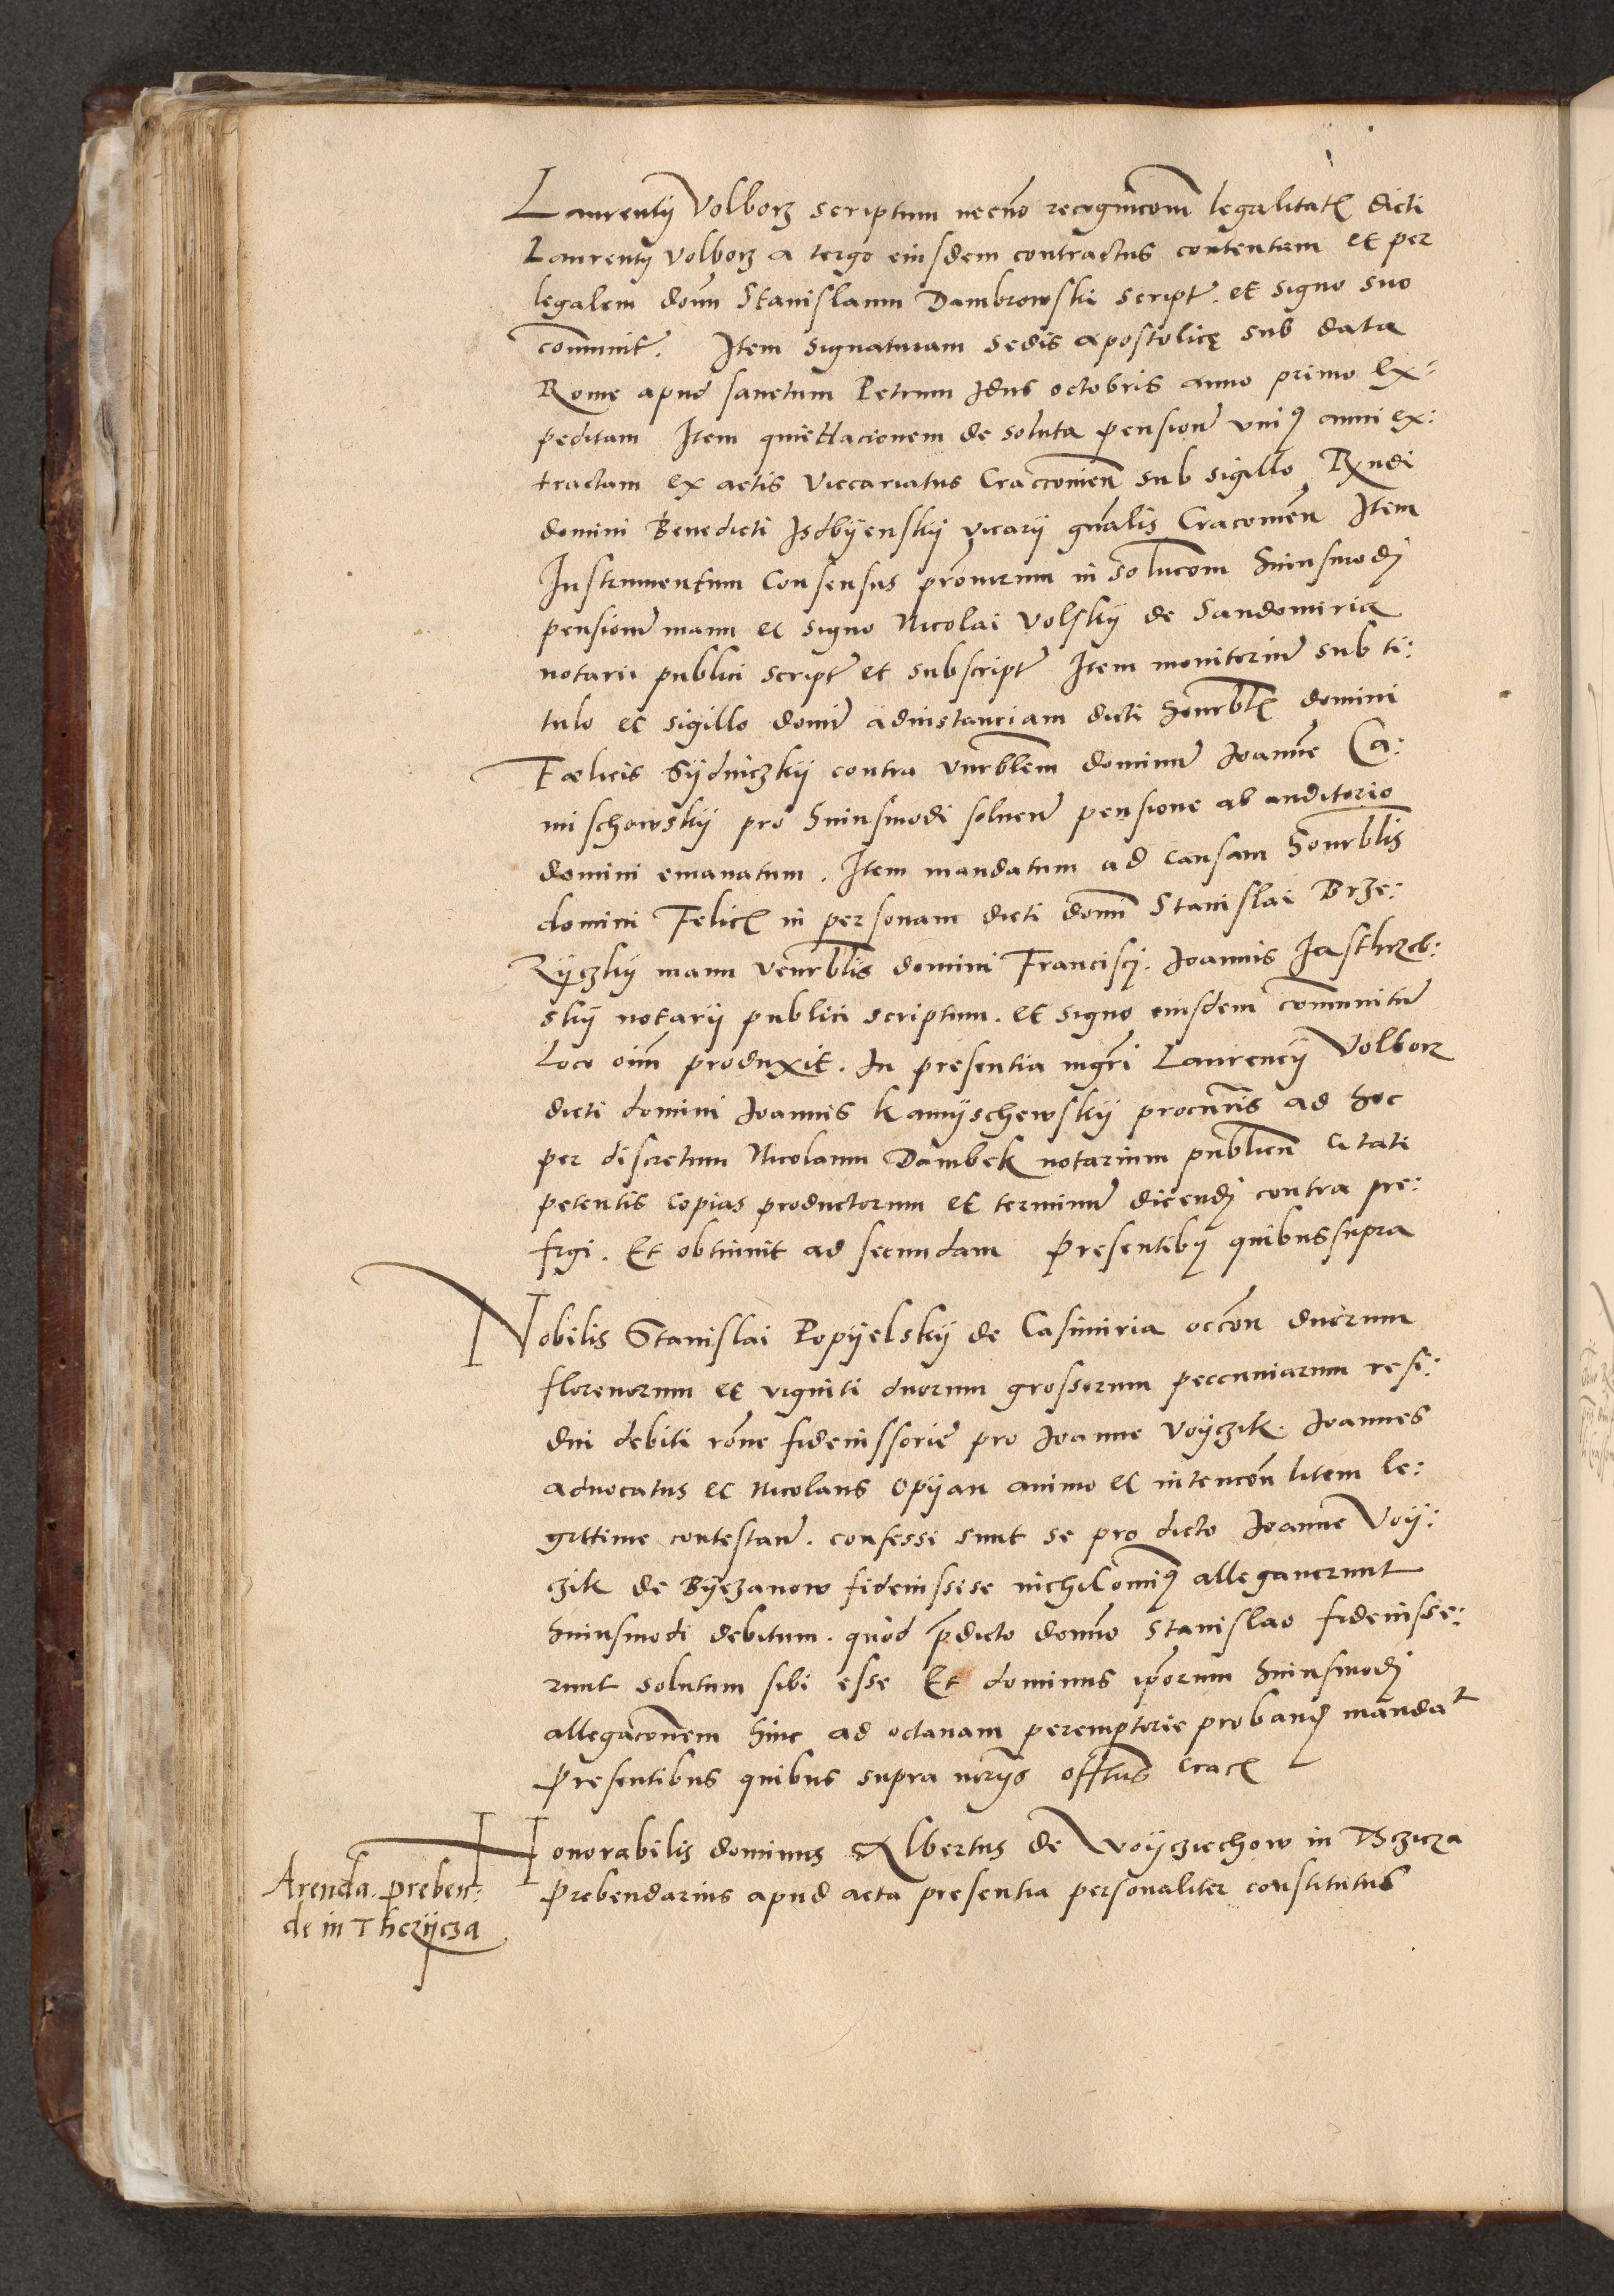 Laurentij Volborz scriptum necno͞ recognico͞m legalitat͞ dicti
Laurentij Volborz a tergo eiusdem contractus contentam et per
legalem dom͞ Stanislaum Dambrowski script͞. et signo suo
communit͞. Item signaturam sedis apostolicę sub data
Rome apud sanctum Petrum Idus octobris anno primo ex:
peditam Item quiettacionem de soluta pension͞ vniꝰ anni ex:
tractam ex actis Viccariatus Cracconien͞ sub sigillo R͞ndi
domini Benedicti Isdbijenskij vicarij gn͞alis Cracouien͞ Item
Instrumentum Consensus prouisrum in soluco͞m huiusmodj
pension͞ manu et signo Nicolai Volskij de Sandomiria
notarii publici script͞ et subscript͞ Item monitoriu͞ sub ti:
tulo et sigillo domi͞ adinstanciam dicti honrbl͞ domini
Fælicis Sijdniczkij contra vnrble͞m dominu͞ Ioanne͞ Ca:
mischowskij pro huiusmodi soluen͞ pensione ab auditorio
domini emanatum. Item mandatum ad causam honrbl͞is
domini Felic͞ in personam dicti dom͞i Stanislai Brze:
zijczkij manu venrbl͞is domini Franciscj. Ioannis Jasthrzeb:
skij notarij publici scriptum. et signo eiusdem communitu͞
Loco oim͞ produxit. In presentia mgr͞i Laurencij Volborz
dicti domini Ioannis Kamijschewskij procur͞is ad hoc
per discretum Nicolaum Dambek notarium publicu͞ citati
petentis copias productorum et terminu͞ dicendj contra pre:
figi. Et obtinuit ad secundam Presentibꝰ quibussupra
Nobilis Stanislai Popijelskij de Casimiria occo͞n duorum
florenorum et viginti duorum grossorum peccuniarum resi:
dui debiti ro͞ne fideiussorie͞ pro Ioanne Voijczik. Ioannes
aduocatus et Nicolaus Opijan animo et intenco͞n litem le:
gittime contestan͞. confessi sunt se pro dicto Ioanne Voij:
czik de Bijczanow fideiussisse nichilomiꝰ allegauerunt
huiusmodi debitum. quod p͞dicto domi͞o Stanislao fideiusse:
runt solutum sibi esse Et dominus ip͞orum huiusmodj
allegaco͞nem hinc ad octauam peremptorie proband͞ mandat
Presentibus quibus supra nor͞ijs offt͞us crac͞
Honorabilis dominus Albertus de Woijcziechow in Thczicza
Prebendarius apud acta presentia personaliter constitutus
Arenda. preben:
de in Thczijcza